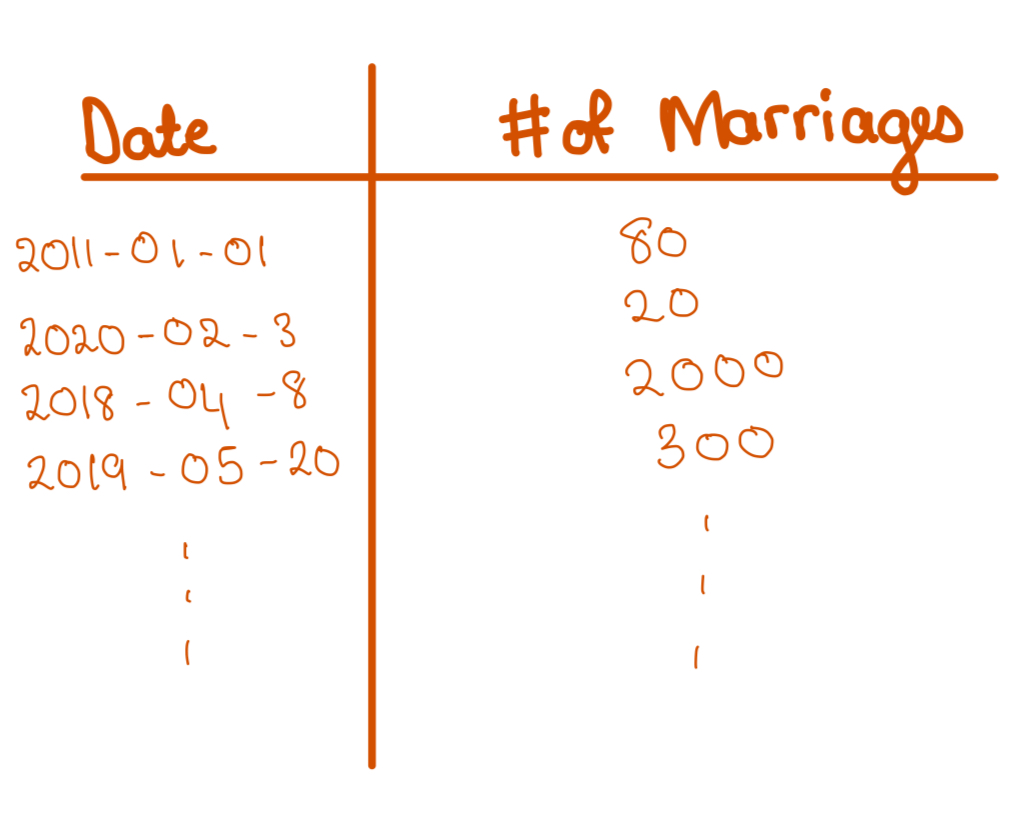 Date # of Marriages
2011-01-01 80
2020-02-3 20
2018-04-8 2000
2019-05-20 300